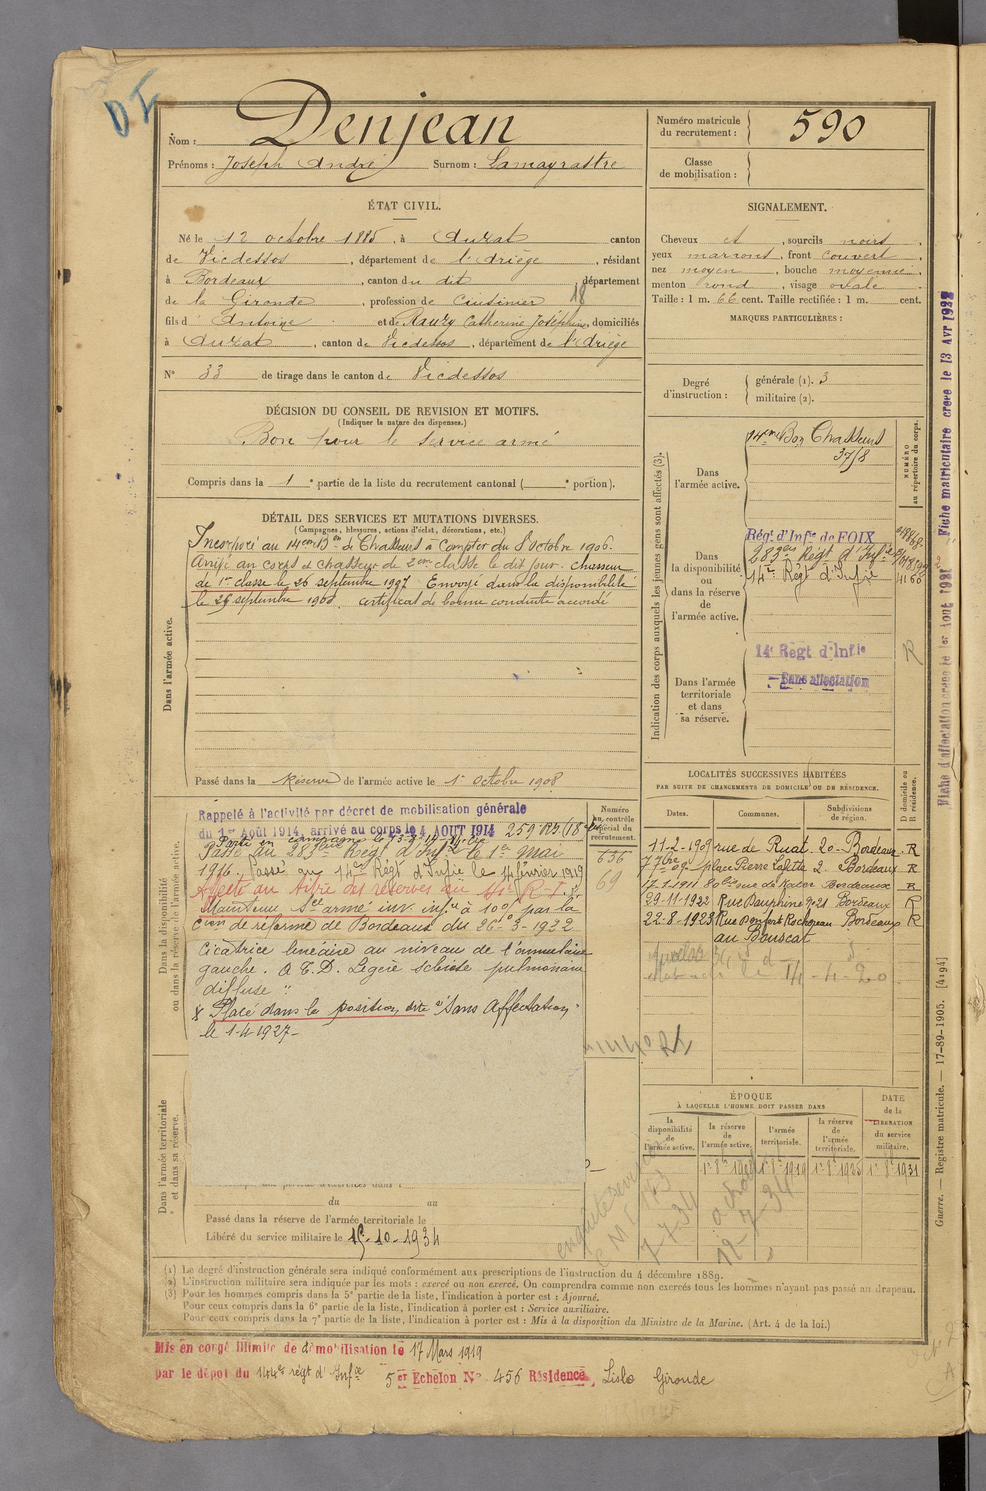 DI
Nom : Denjean
Prénoms : Joseph André Surnom : Lamayrastre
Numéro matricule du recrutement : 590
Classe de mobilisation :
ÉTAT CIVIL.
Né le 12 octobre 1885, à Auzat canton
de Vicdessos, département de l'Ariège, résidant
à Bordeaux, canton du dit, département
de la Gironde, profession de Cuisinier 18
fils d' Antoine et de Rauzy Catherine Joséphine, domiciliés
à Auzat, canton de Vicdessos, département de l'Ariège
N° 33 de tirage dans le canton de Vicdessos
SIGNALEMENT.
Cheveux et, sourcils noirs
yeux marrons, front couvert
nez moyen, bouche moyenne
menton rond, visage ovale
Taille : 1 m. 66 cent. Taille rectifiée : 1 m. cent.
MARQUES PARTICULIÈRES :
Degré d'instruction : générale (1). 3
militaire (2).
DÉCISION DU CONSEIL DE REVISION ET MOTIFS.
(Indiquer la nature des dispenses.)
Bon pour le service armé
Compris dans la 1e partie de la liste du recrutement cantonal ( e portion).
DÉTAIL DES SERVICES ET MUTATIONS DIVERSES.
(Campagnes, blessures, actions d'éclat, décorations, etc.)
Dans l'armée active.
Incorporé au 14eme Bon de Chasseurs à compter du 8 octobre 1906.
Arrivé au corps et chasseur de 2eme classe le dit jour. Chasseur
de 1re classe le 26 septembre 1907 Envoyé dans la disponibilité
le 25 septembre 1908. certificat de bonne conduite accordé
Passé dans la Réserve de l'armée active le 1er Octobre 1908
Indication des corps auxquels les jeunes gens sont affectés (3).
NUMÉRO au répertoire du corps.
Dans l'armée active.
14eme Bon Chasseurs
37/8
Dans la disponibilité ou dans la réserve de l'armée active.
Rég. d'Infie de FOIX
283eme Régt d'Infie
14e Régt d'Infie
41160
14e Régt d'Infie
Sans affectation
R
Dans l'armée territoriale et dans sa réserve.
Fiche d'affectation créée le 1er Août 192 Fiche matriculaire créée le 13 Avr 1922
Dans la disponibilité ou dans la réserve de l'armée active.
Rappelé à l'activité par décret de mobilisation générale
du 1er Août 1914, arrivé au corps le 4 AOUT 1914
Passé au 283eme Régt d'Infie le 1er Mai
1916. Passé au 14eme Régt d'Infie le 4 février 1919
Affecté au titre des réserves au 14e R.I.
Maintenu Sce armé inv. infre à 10% par la
Cion de réforme de Bordeaux du 26-3-1922
Cicatrice linéaire au niveau de l'annulaire
gauche. A.T.D. Légère sclérose pulmonaire
diffuse "
Placé dans la position dite "Sans Affectation"
le 1-4-1927-
Numéro au contrôle spécial du recrutement.
636
69
LOCALITÉS SUCCESSIVES HABITÉES
PAR SUITE DE CHANGEMENTS DE DOMICILE OU DE RÉSIDENCE.
D domicile ou R résidence.
Dates. Communes. Subdivisions de région.
11-2-1909 rue de Ruat. 20- Bordeaux R
7 7bre 09 place Pierre Lafitte 2 Bordeaux R
17-1-1911 Bordeaux R
29-11-1922 Rue Dauphine Bordeaux R
22-8-1923 Rue Bonfort Rochereau Bordeaux R
au Bouscat
14-4-20
ÉPOQUE
À LAQUELLE L'HOMME DOIT PASSER DANS
la disponibilité de l'armée active.
la réserve de l'armée active.
l'armée territoriale.
la réserve de l'armée territoriale.
DATE de la LIBÉRATION du service militaire.
7-7-34
12-7-34
Dans l'armée territoriale et dans sa réserve.
du au
Passé dans la réserve de l'armée territoriale le
Libéré du service militaire le 15-10-1934
(1) Le degré d'instruction générale sera indiqué conformément aux prescriptions de l'instruction du 4 décembre 1889.
(2) L'instruction militaire sera indiquée par les mots : exercé ou non exercé. On comprendra comme non exercés tous les hommes n'ayant pas passé au drapeau.
(3) Pour les hommes compris dans la 5e partie de la liste, l'indication à porter est : Ajourné.
Pour ceux compris dans la 6e partie de la liste, l'indication à porter est : Service auxiliaire.
Pour ceux compris dans la 7e partie de la liste, l'indication à porter est : Mis à la disposition du Ministre de la Marine. (Art. 4 de la loi.)
Guerre. — Registre matricule. — 17-89-1905. [4194]
Mis en congé illimité de démobilisation le 17 Mars 1919
par le dépôt du 144e régt d'Infie 5er Echelon N° 456 Résidence Gironde